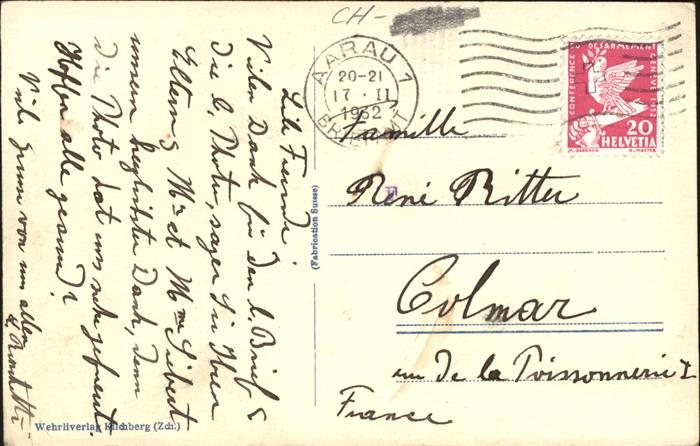 CH-
AARAU 1
20-21
17 · II
1932
BRIEFPOST
CONFERENCE DU DESARMEMENT GENEVE 1932
20
HELVETIA
Lb. Freunde!
Vielen Dank für den l. Brief &
die l. Photo, sagen Sie Ihren
Eltern & Mr et Mme Siebert
unsern herzlichsten Dank, denn
die Photo hat uns sehr gefreut.
Hoffen alle gesund?
Viele Grüsse von uns allen
Famille
René Ritter
Colmar
rue de la Poissonnerie 1
France
(Fabrication Suisse)
Wehrliverlag Kilchberg (Zch.)